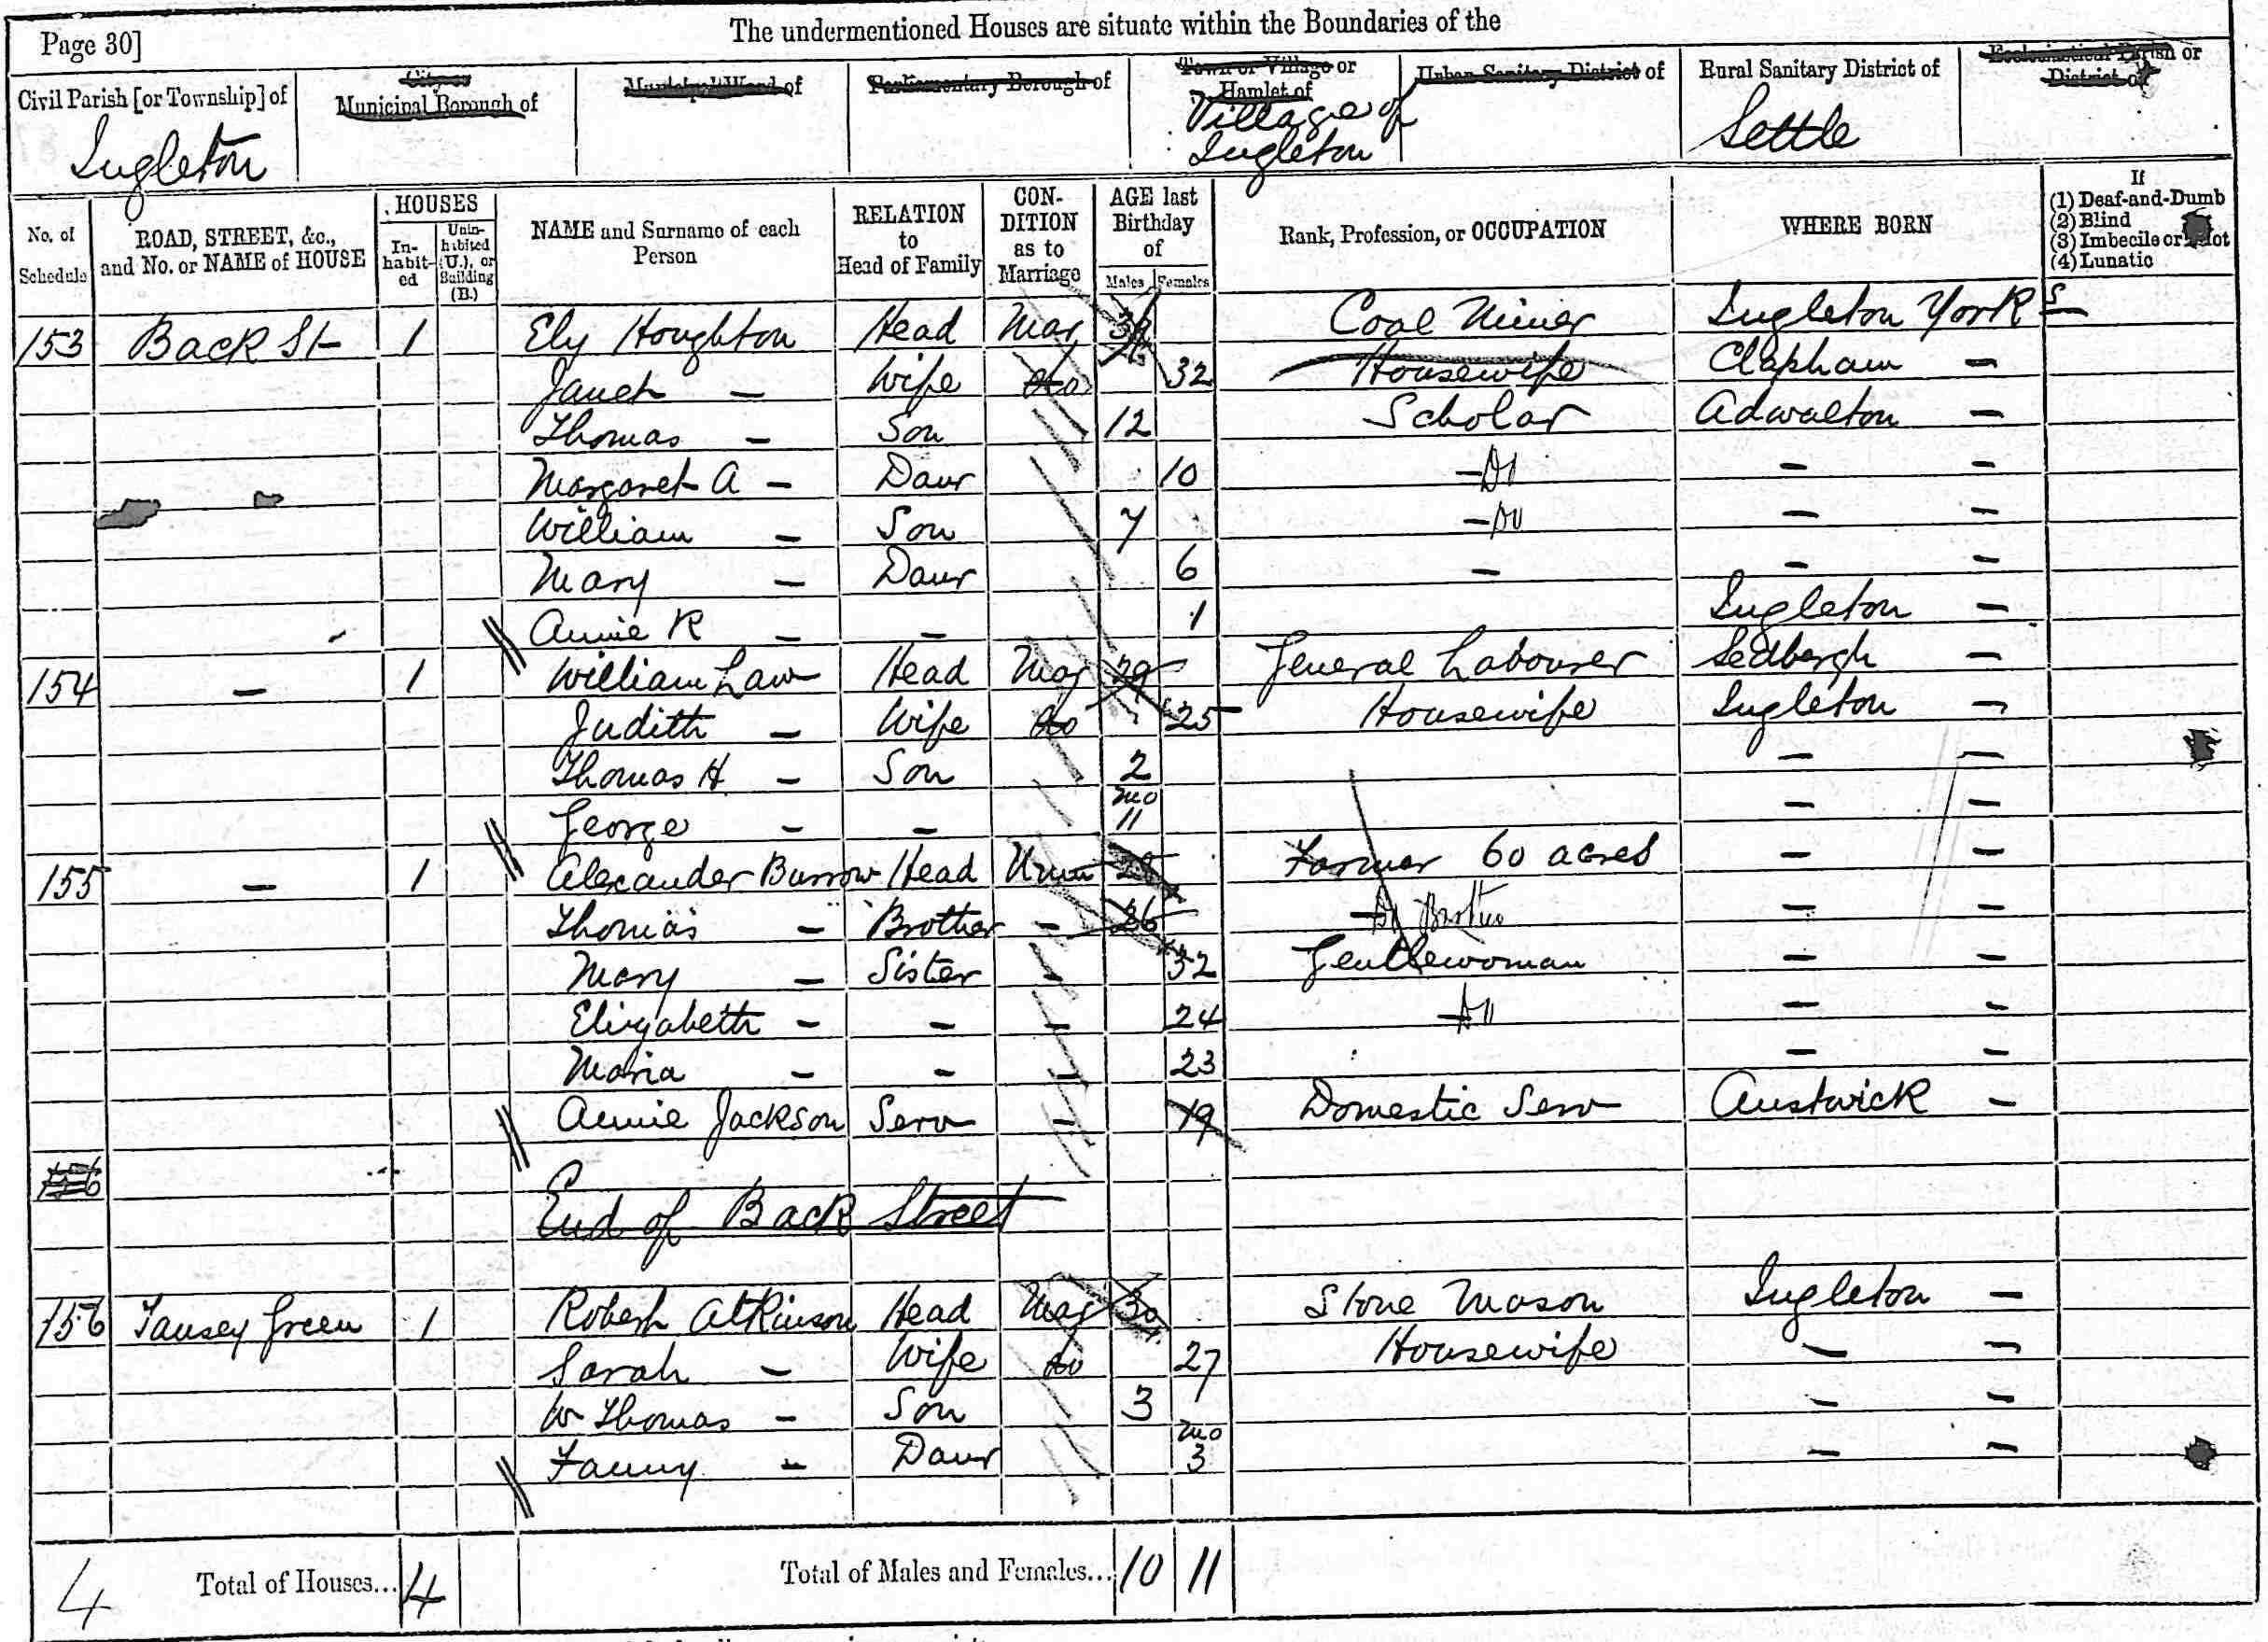 The undermentioned Houses are situate within the Boundaries of the
Page 30]
Civil Parish [or Township] of
City or Municipal Borough of
Municipal Ward of
Parliamentary Borough of
Town or Village or Hamlet of
Urban Sanitary District of
Rural Sanitary District of
Ecclesiastical Parish or District of
Ingleton
Village of Ingleton
Settle
No. of Schedule
ROAD, STREET, &c., and No. or NAME of HOUSE
HOUSES
In-habit-ed
Unin-habited (U.), or Building (B.)
NAME and Surname of each Person
RELATION to Head of Family
CON-DITION as to Marriage
AGE last Birthday of
Males
Females
Rank, Profession, or OCCUPATION
WHERE BORN
If
(1) Deaf-and-Dumb
(2) Blind
(3) Imbecile or Idiot
(4) Lunatic
153 Back St 1 Ely Houghton Head Mar Coal Miner Ingleton Yorks
Janet — Wife do 32 Housewife Clapham —
Thomas — Son 12 Scholar Adwalton —
Margaret A — Daur 10 — Do — —
William — Son 7 — Do — —
Mary — Daur 6 — — —
Annie R — — 1 Ingleton —
154 — 1 William Law Head Mar 29 General Labourer Sedbergh —
Judith — Wife do 25 Housewife Ingleton —
Thomas H — Son 2 — —
George — — mo 11 — —
155 — 1 Alexander Burrow Head Unm Farmer 60 acres — —
Thomas — Brother — 26 Do Brother — —
Mary — Sister — 32 Gentlewoman — —
Elizabeth — — — 24 — Do — —
Maria — — — 23 — —
Annie Jackson Serv — 19 Domestic Serv Austwick —
156
End of Back Street
156 Tansey Green 1 Robert Atkinson Head Mar 30 Stone Mason Ingleton —
Sarah — Wife do 27 Housewife — —
W Thomas — Son 3 — —
Fanny — Daur mo 3 — —
4 Total of Houses... 4 Total of Males and Females... 10 11